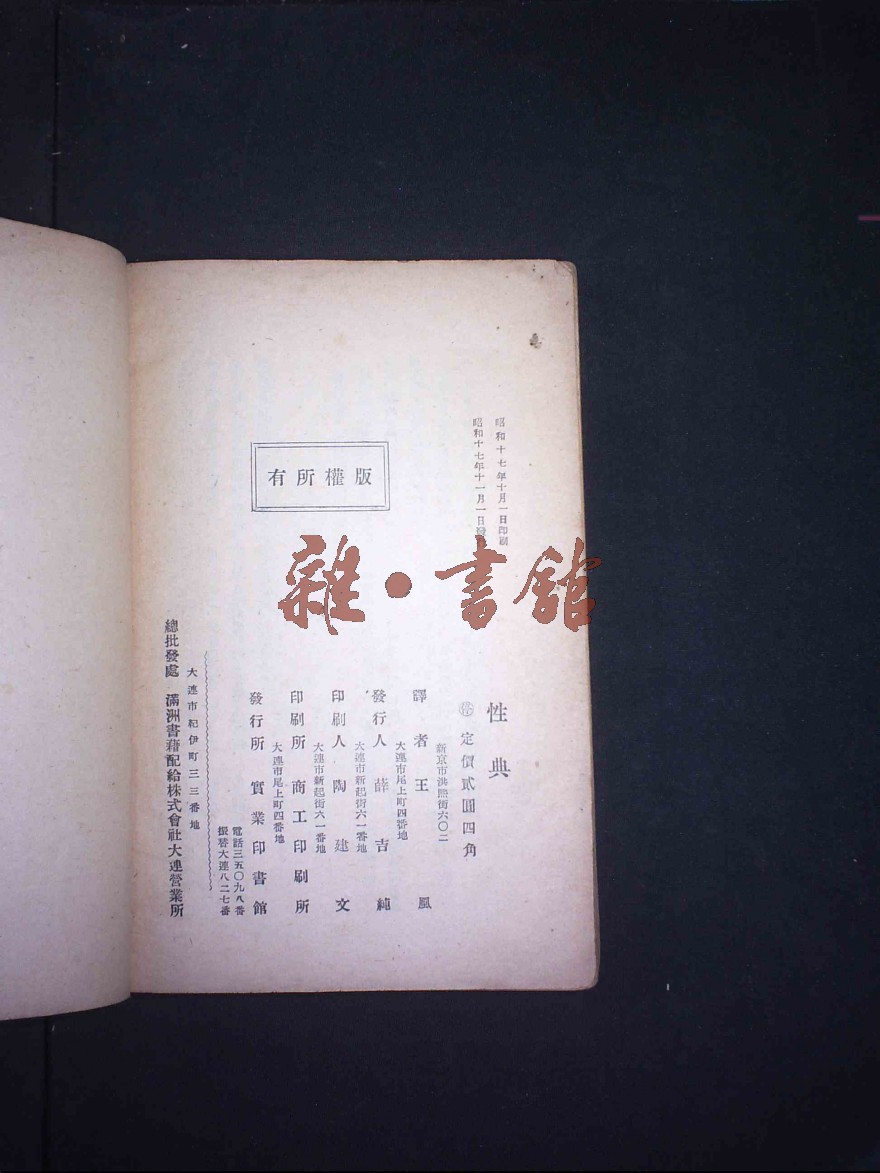 昭和十七年十月一日印刷
昭和十七年十一月一日發
版權所有
雜·書館
性典
定價貳圓四角
新京市洪熙街六〇二
譯者 王風
大連市尾上町四番地
發行人 薛吉純
大連市新起街六一番地
印刷人 陶建文
大連市新起街六一番地
印刷所 商工印刷所
大連市尾上町四番地
發行所 實業印書館
電話三五〇九八番
振替大連八二七番
大連市紀伊町三三番地
總批發處 滿洲書藉配給株式會社大連營業所